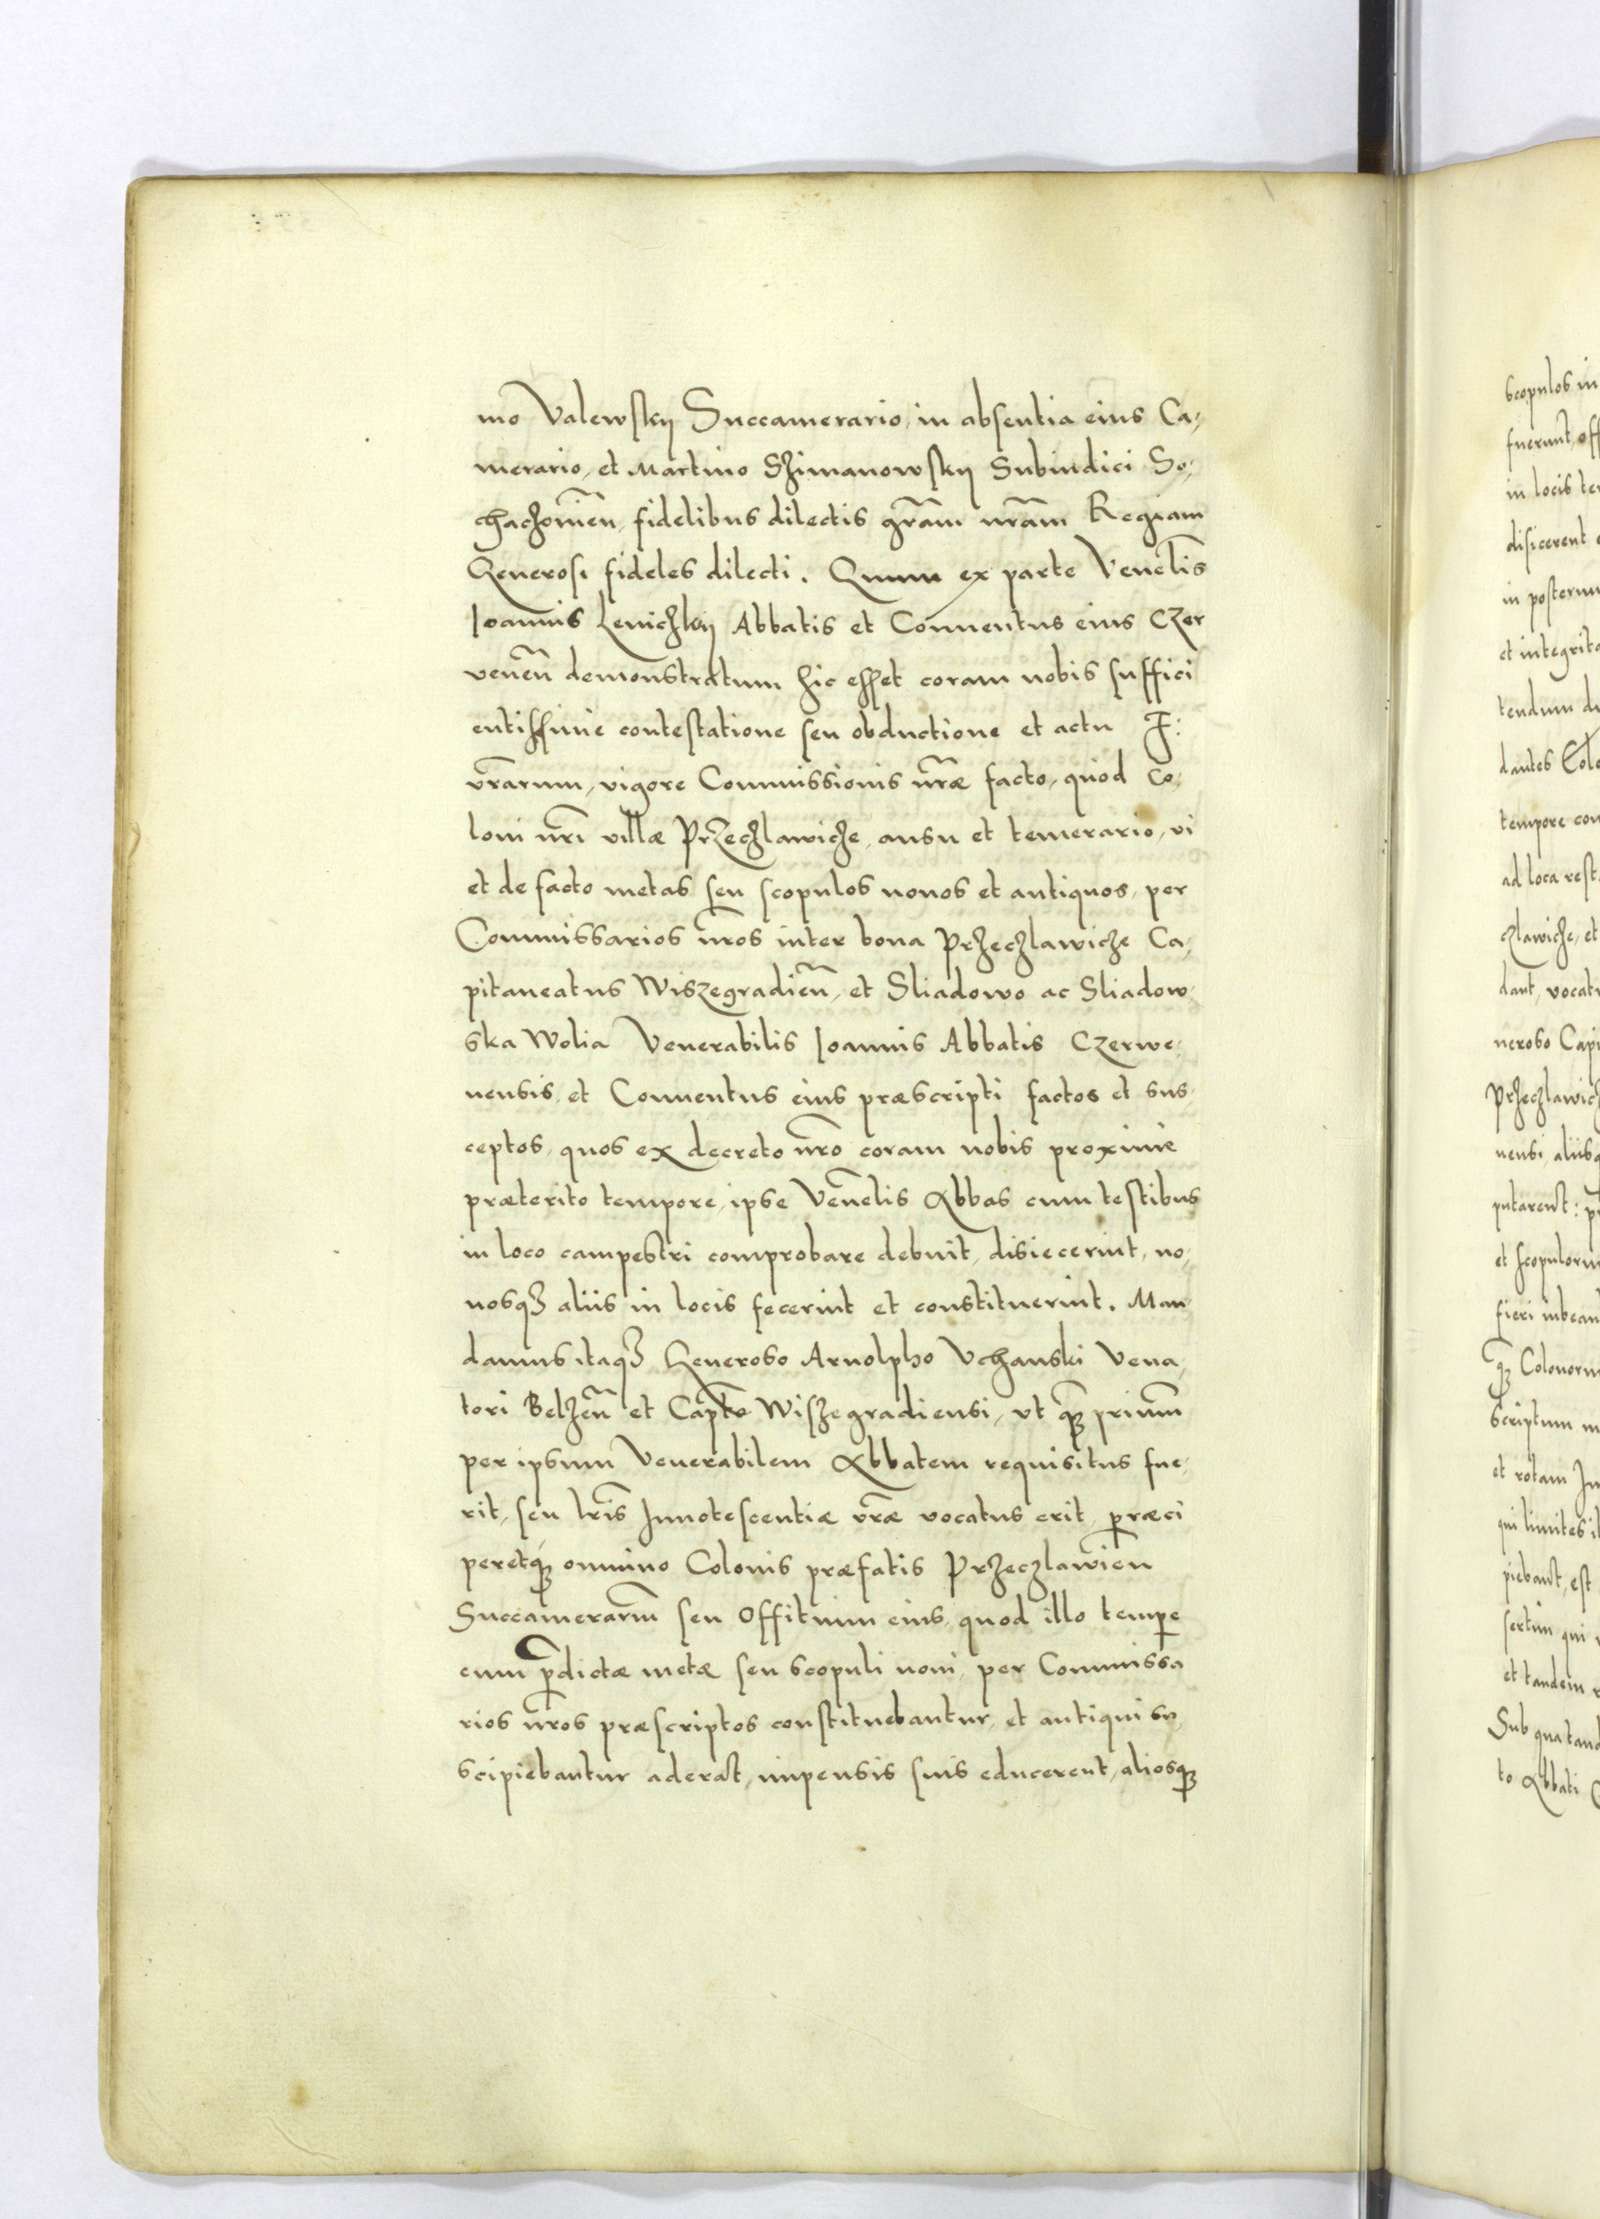 mo Valewskij Succamerario, in absentia eius Ca,
merario, et Martino Szimanowskij Subiudici So,
chaczovien̄, fidelibus dilectis gr̄am nr̄am Regiam
Generosi fideles dilecti. Quum ex parte Venel̄is
Ioannis Leniczkij Abbatis et Conuentus eius Czer
venen̄ demonstratum hic esset coram nobis suffici
entissime contestatione seu obductione et actu F:
vr̄arum, vigore Commissionis nr̄æ facto, quod Co,
loni nr̄i villæ Przeczlawicze, ausu et temerario, vi
et de facto metas seu scopulos nouos et antiquos, per
Commissarios nr̄os inter bona Przeczlawicze Ca,
pitaneatus Wiszegradien̄, et Sliadowo ac Sliadow,
ska Wolia Venerabilis Ioannis Abbatis Czerwe,
nensis, et Conuentus eius præscripti factos et sus,
ceptos, quos ex decreto nr̄o coram nobis proxime
præterito tempore, ipse Venel̄is Abbas cum testibus
in loco campestri comprobare debuit, disiecerint, no,
uosq3 aliis in locis fecerint et constituerint. Man,
damus itaq3 Generoso Arnolpho Vchanski Vena,
tori Belzen̄ et Capt̄o Wiszegradiensi, vt q̄3 primum̄
per ipsum Venerabilem Abbatem requisitus fue,
rit, seu lr̄is Innotescentiæ vr̄æ vocatus erit, præci
peretq3 omnino Colonis præfatis Przeczlawien̄
Succamerariu̅m seu Offitium eius, quod illo tempe
cum p̄dictæ metæ seu scopuli noui, per Commissa
rios nr̄os præscriptos constituebantur, et antiqui su,
scipiebantur aderat, impensis suis educerent, aliosq3
scopulos in
fuerunt, off
in locis te
disicerent
in posterum
et integrita
tendum
dantes Colo
tempore con
ad loca rest
czlawicze, et
dant, vocat
neroso Capi
Przeczlawicz
nensi, aliisq
putarent: p
et scopuloru
fieri iubean
q3 Colonoru
Scriptum
et rotam
qui limites
piebant, est
sertim qui
et tandem
Sub qua tand
to Abbati